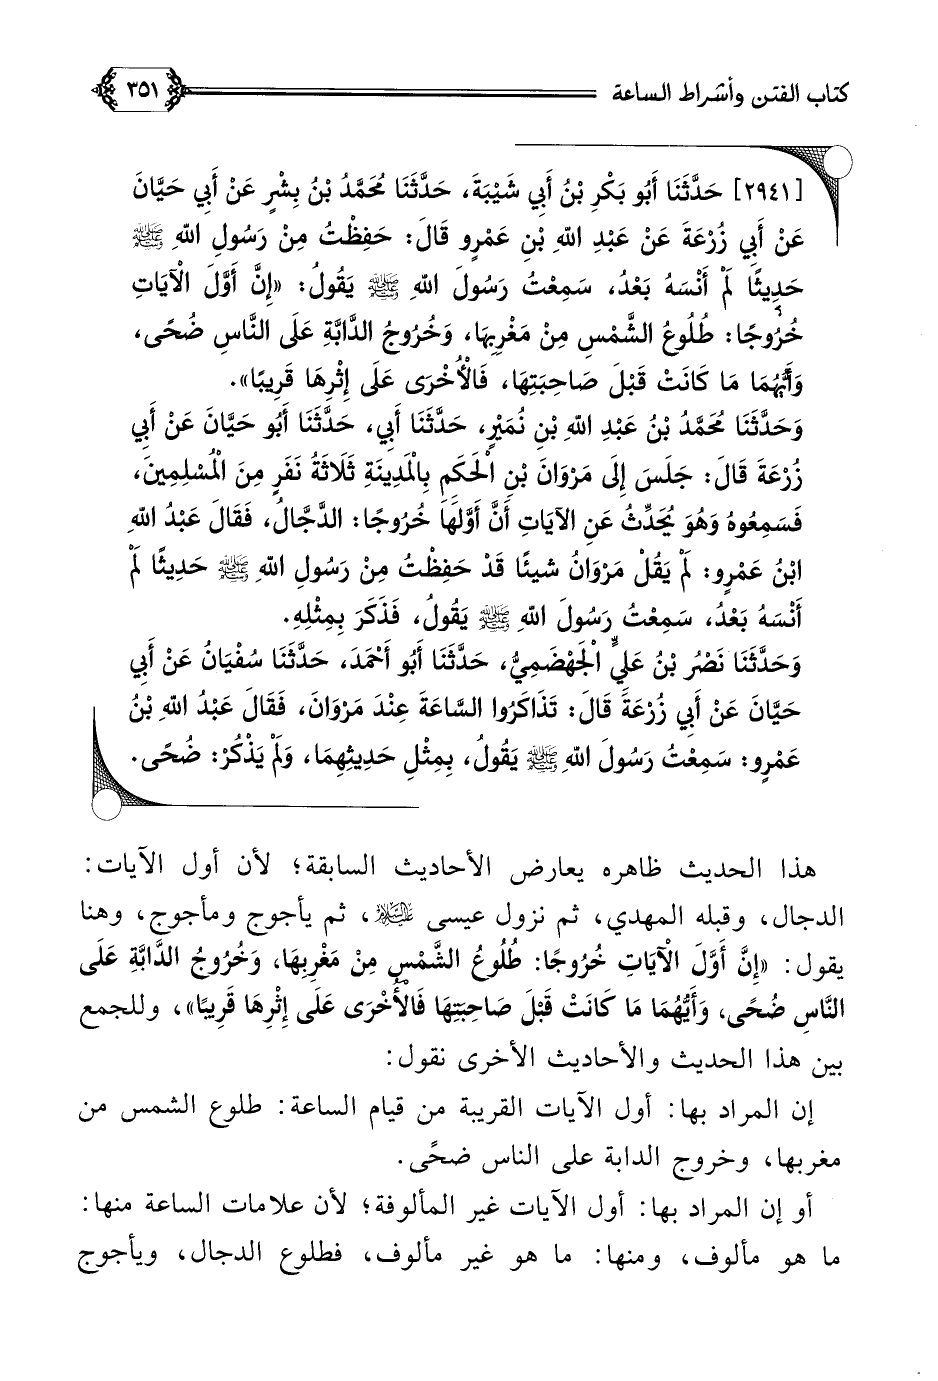 كتاب الفتن وأشراط الساعة ٣٥١
[٢٩٤١] حَدَّثَنَا أَبُو بَكْرِ بْنُ أَبِي شَيْبَةَ، حَدَّثَنَا مُحَمَّدُ بْنُ بِشْرٍ عَنْ أَبِي حَيَّانَ
عَنْ أَبِي زُرْعَةَ عَنْ عَبْدِ اللهِ بْنِ عَمْرٍو قَالَ: حَفِظْتُ مِنْ رَسُولِ اللهِ ﷺ
حَدِيثًا لَمْ أَنْسَهُ بَعْدُ، سَمِعْتُ رَسُولَ اللهِ ﷺ يَقُولُ: «إِنَّ أَوَّلَ الْآيَاتِ
خُرُوجًا: طُلُوعُ الشَّمْسِ مِنْ مَغْرِبِهَا، وَخُرُوجُ الدَّابَّةِ عَلَى النَّاسِ ضُحًى،
وَأَيُّهُمَا مَا كَانَتْ قَبْلَ صَاحِبَتِهَا، فَالْأُخْرَى عَلَى إِثْرِهَا قَرِيبًا».
وَحَدَّثَنَا مُحَمَّدُ بْنُ عَبْدِ اللهِ بْنِ نُمَيْرٍ، حَدَّثَنَا أَبِي، حَدَّثَنَا أَبُو حَيَّانَ عَنْ أَبِي
زُرْعَةَ قَالَ: جَلَسَ إِلَى مَرْوَانَ بْنِ الْحَكَمِ بِالْمَدِينَةِ ثَلَاثَةُ نَفَرٍ مِنَ الْمُسْلِمِينَ،
فَسَمِعُوهُ وَهُوَ يُحَدِّثُ عَنِ الآيَاتِ أَنَّ أَوَّلَهَا خُرُوجًا: الدَّجَّالُ، فَقَالَ عَبْدُ اللهِ
ابْنُ عَمْرٍو: لَمْ يَقُلْ مَرْوَانُ شيئًا قَدْ حَفِظْتُ مِنْ رَسُولِ اللهِ ﷺ حَدِيثًا لَمْ
أَنْسَهُ بَعْدُ، سَمِعْتُ رَسُولَ اللهِ ﷺ يَقُولُ، فَذَكَرَ بِمِثْلِهِ.
وَحَدَّثَنَا نَصْرُ بْنُ عَلِيٍّ الْجَهْضَمِيُّ، حَدَّثَنَا أَبُو أَحْمَدَ، حَدَّثَنَا سُفْيَانُ عَنْ أَبِي
حَيَّانَ عَنْ أَبِي زُرْعَةَ قَالَ: تَذَاكَرُوا السَّاعَةَ عِنْدَ مَرْوَانَ، فَقَالَ عَبْدُ اللهِ بْنُ
عَمْرٍو: سَمِعْتُ رَسُولَ اللهِ ﷺ يَقُولُ، بِمِثْلِ حَدِيثِهِمَا، وَلَمْ يَذْكُرْ: ضُحًى.
هذا الحديث ظاهره يعارض الأحاديث السابقة؛ لأن أول الآيات:
الدجال، وقبله المهدي، ثم نزول عيسى عليه السلام، ثم يأجوج ومأجوج، وهنا
يقول: «إِنَّ أَوَّلَ الْآيَاتِ خُرُوجًا: طُلُوعُ الشَّمْسِ مِنْ مَغْرِبِهَا، وَخُرُوجُ الدَّابَّةِ عَلَى
النَّاسِ ضُحًى، وَأَيُّهُمَا مَا كَانَتْ قَبْلَ صَاحِبَتِهَا فَالْأُخْرَى عَلَى إِثْرِهَا قَرِيبًا»، وللجمع
بين هذا الحديث والأحاديث الأخرى نقول:
إن المراد بها: أول الآيات القريبة من قيام الساعة: طلوع الشمس من
مغربها، وخروج الدابة على الناس ضحًى.
أو إن المراد بها: أول الآيات غير المألوفة؛ لأن علامات الساعة منها:
ما هو مألوف، ومنها: ما هو غير مألوف، فطلوع الدجال، ويأجوج